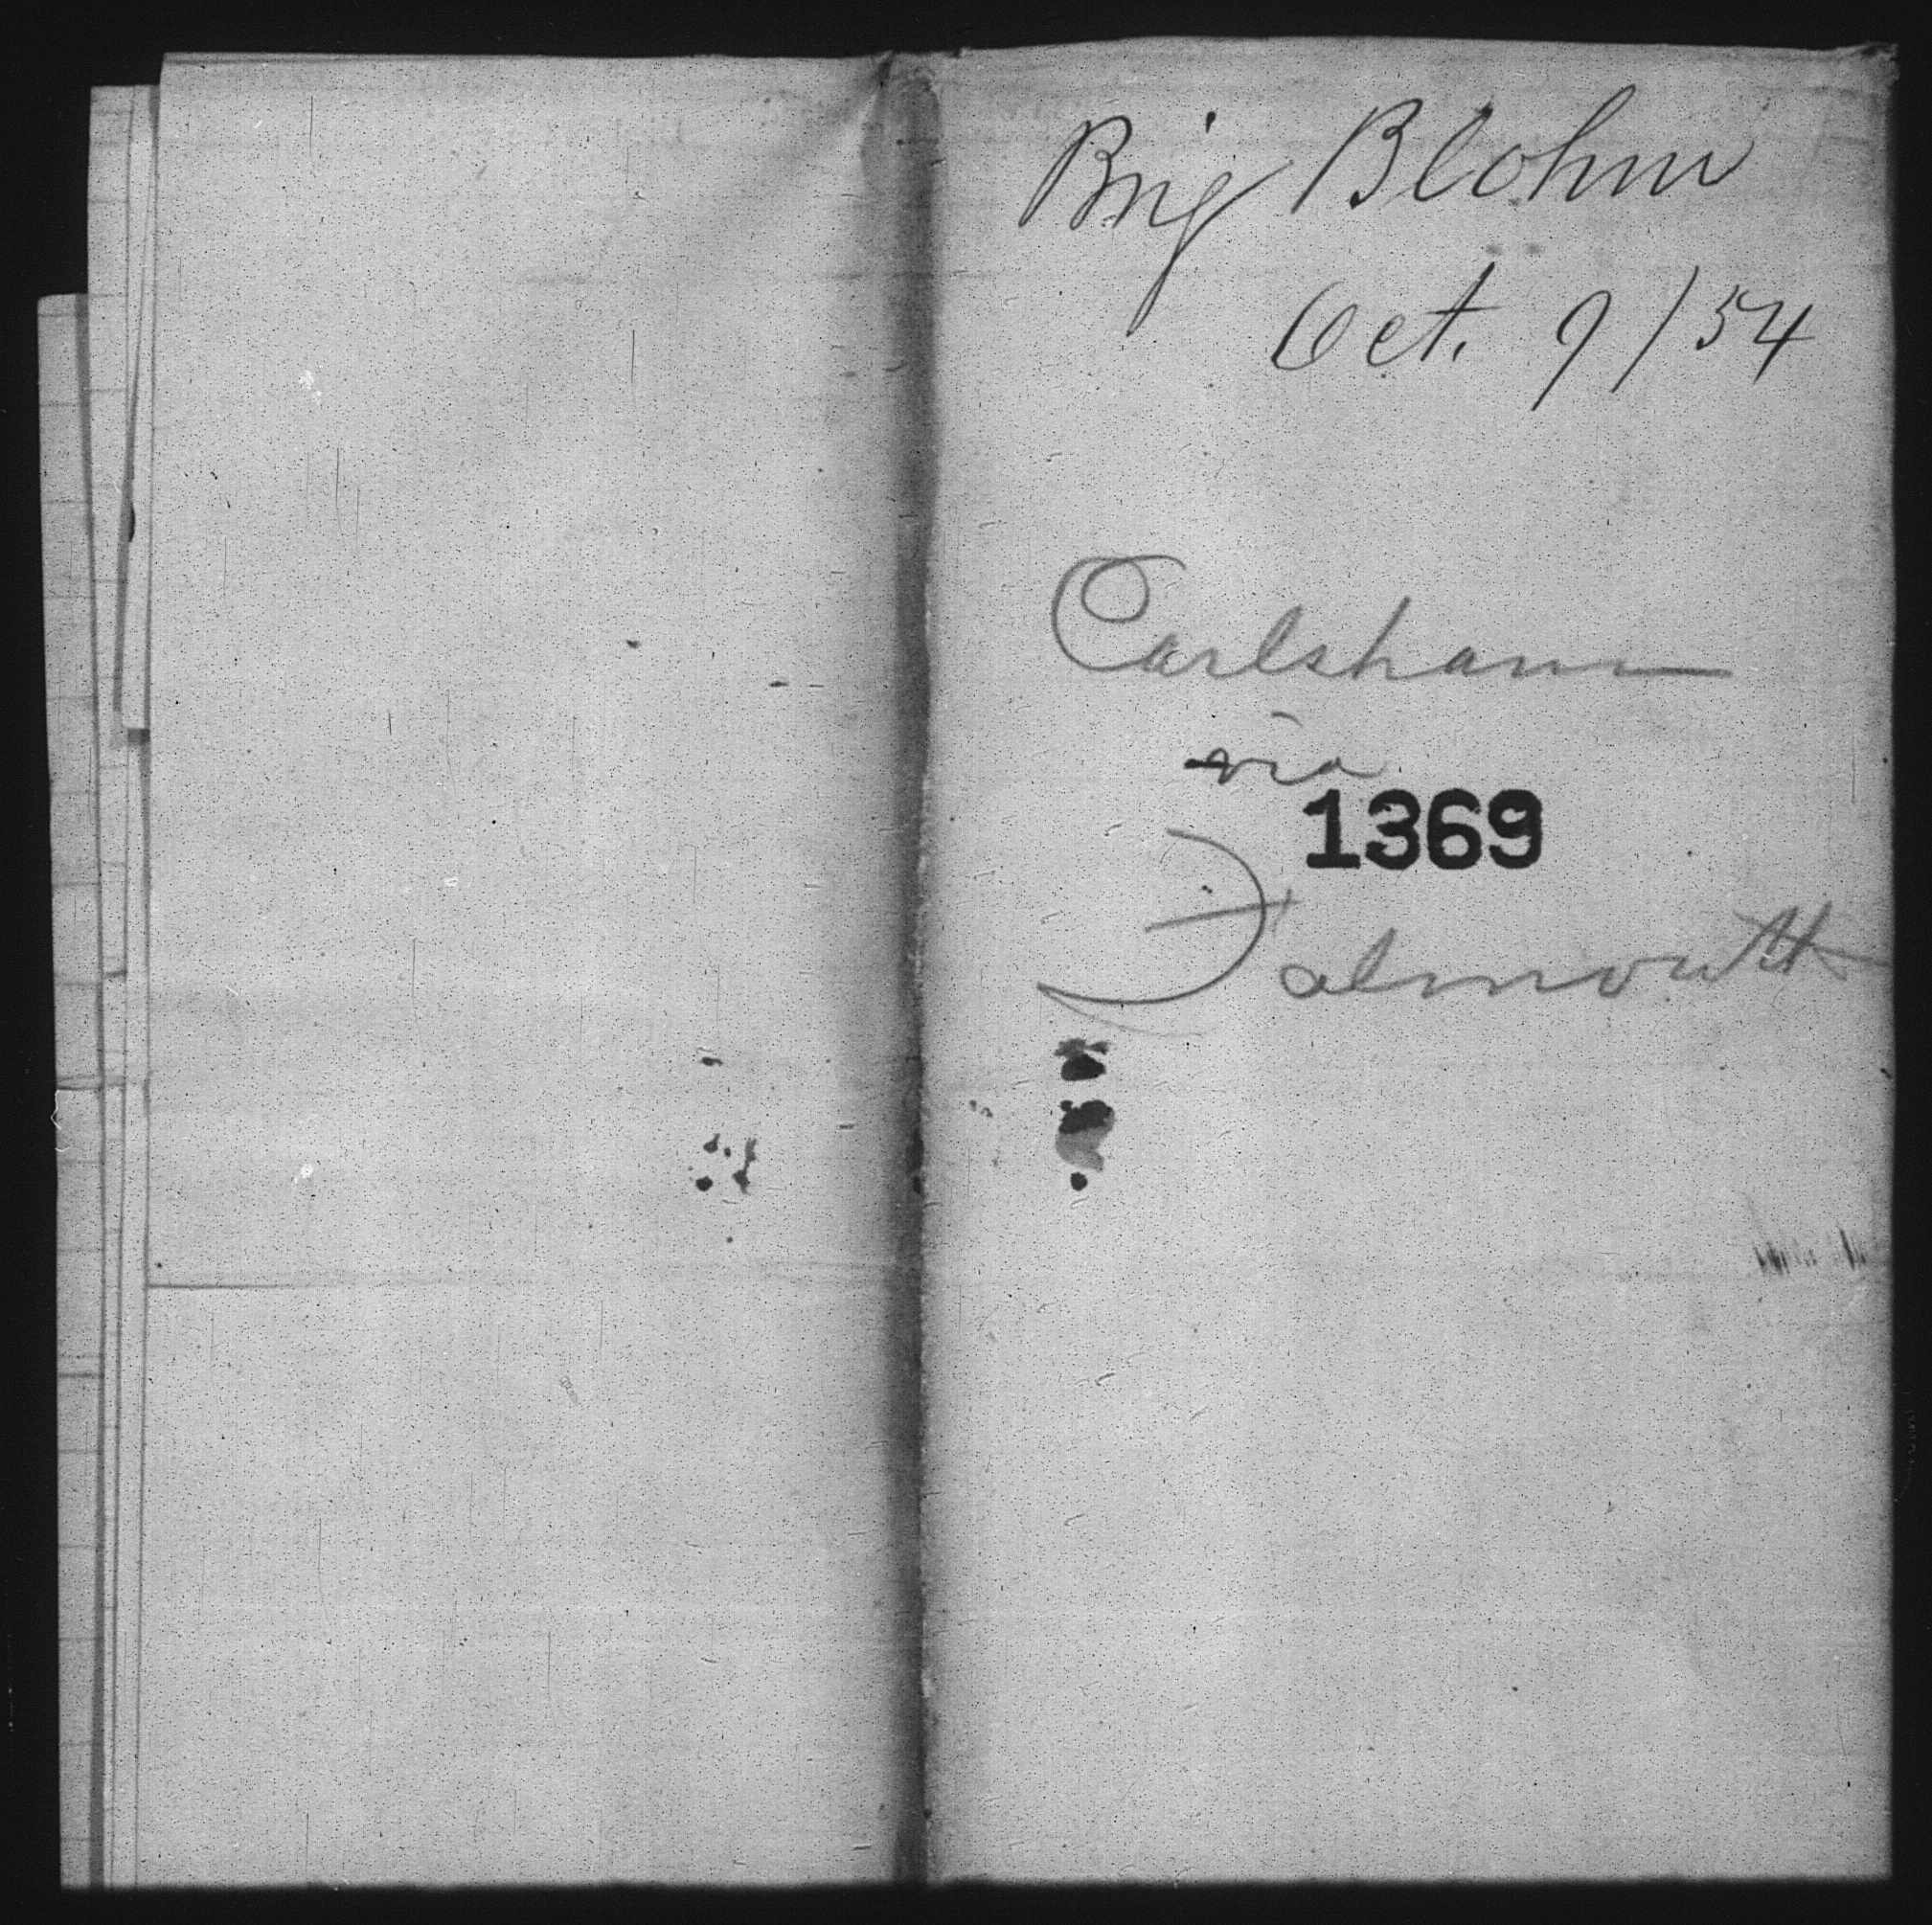 Brig Blohm
Oct. 9/54
Carlsham
via
1369
Falmouth